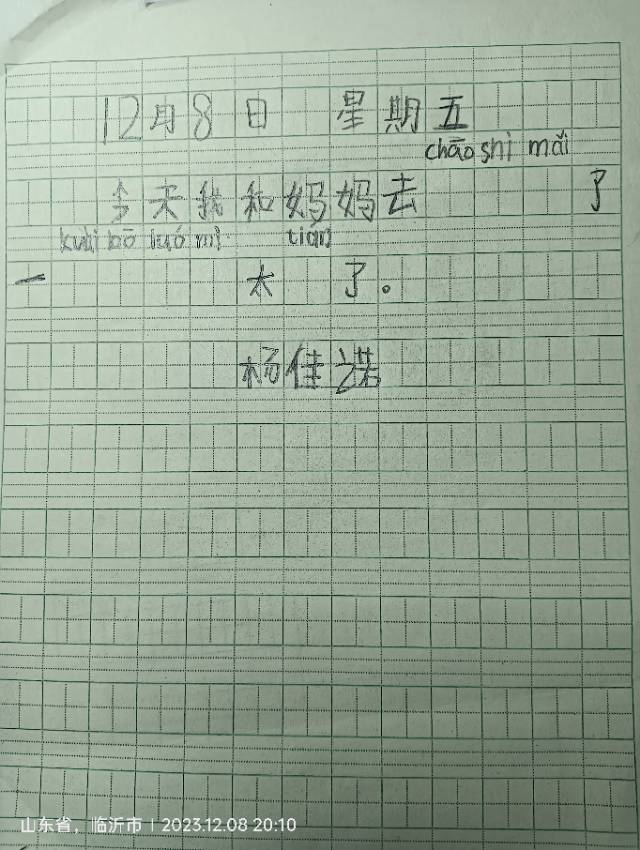 12月8日 星期五
chāo shì mǎi
今天我和妈妈去 了
kuài bō luó mì tián
一 太 了。
杨佳诺
山东省，临沂市 | 2023.12.08 20:10